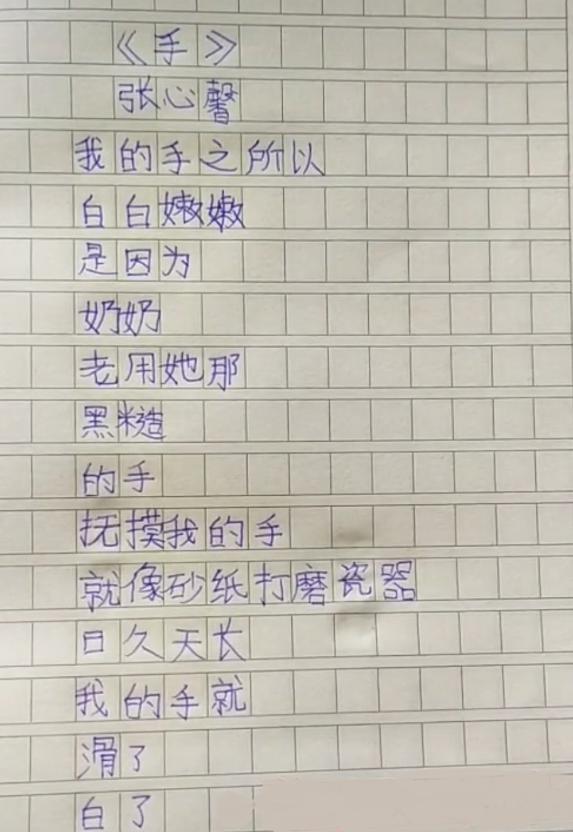 《手》
张心馨
我的手之所以
白白嫩嫩
是因为
奶奶
老用她那
黑糙
的手
抚摸我的手
就像砂纸打磨瓷器
日久天长
我的手就
滑了
白了